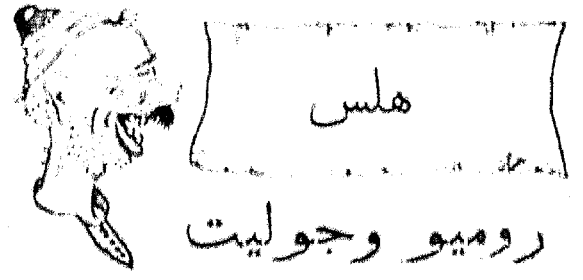 هلس
روميو وجوليت